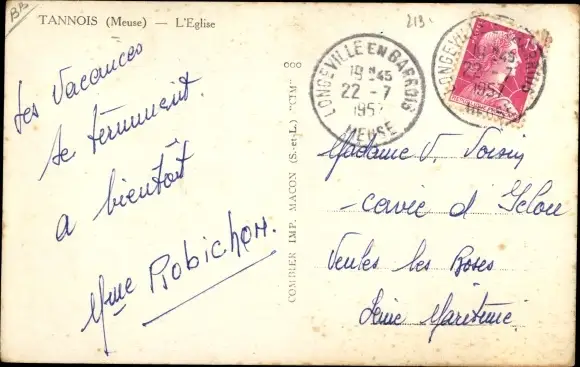 BB
TANNOIS (Meuse) — L'Eglise
213
Les Vacances
se terminent.
a bientôt
Mme Robichon.
COMBIER IMP. MACON (S.-et-L.) "CIM"
LONGEVILLE EN BARROIS
19 H45
22 - 7
1957
MEUSE
15
19 H45
22 - 7
1957
MEUSE
Madame V. Voisin
cavée d
Veules les Roses
Seine Maritime